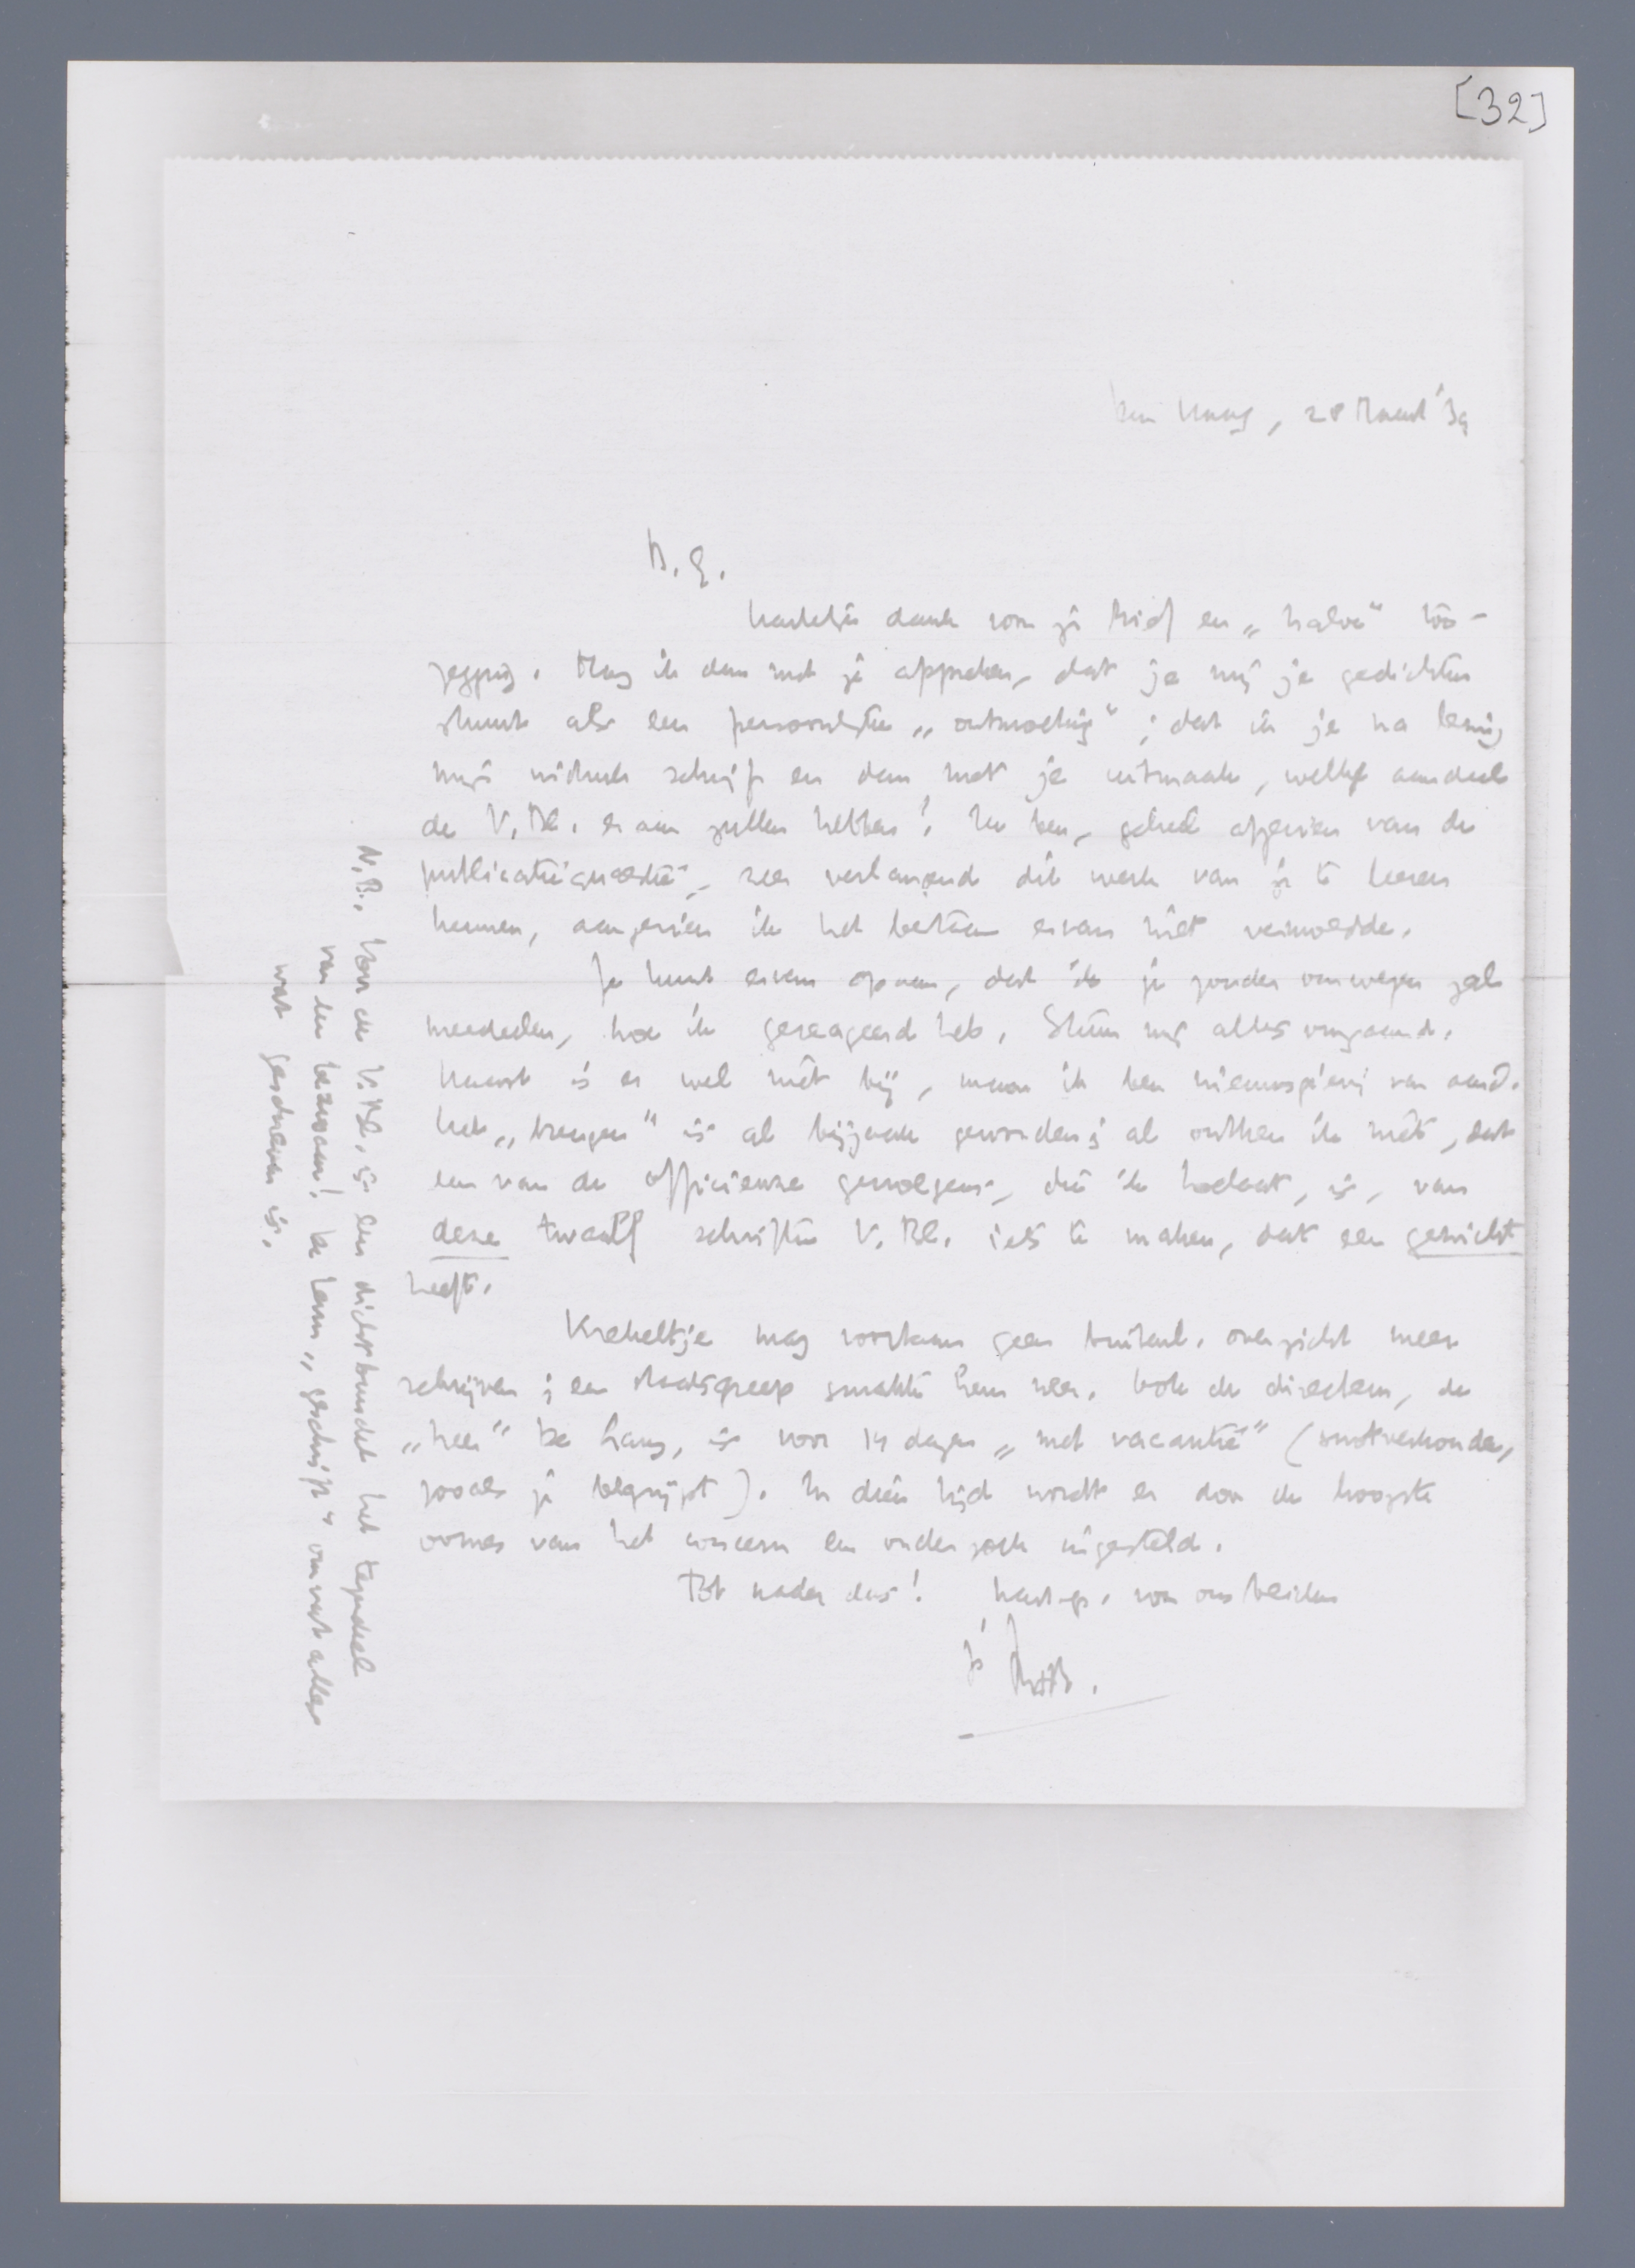 [32]
Den Haag, 28 Maart '39
B. G.
Hartelijk dank voor je brief en „halve" toe-
zegging. Mag ik dan met je afspreken, dat je mij je gedichten
stuurt als een persoonlijke „ontmoeting"; dat ik je na lezing
mijn indruk schrijf en dan met je uitmaak, welk aandeel
de V. Bl. eraan zullen hebben? Ik ben, geheel afgezien van de
publicatiequaestie, zeer verlangend dit werk van je te leeren
kennen, aangezien ik het bestaan ervan niet vermoedde.
Je kunt ervan opaan, dat ik je zonder omwegen zal
meedeelen, hoe ik gereageerd heb. Stuur mij alles omgaand.
Haast is er wel niet bij, maar ik ben nieuwsgierig van aard.
Het „brengen" is al bijzaak geworden; al ontken ik niet, dat
een van de officieuze gevolgen, die ik beoog, is, van
deze twaalf schriften V. Bl. iets te maken, dat een gezicht
heeft.
Krekeltje mag voorloopig geen buitenl. overzicht meer
schrijven; een staatsgreep smakte hem neer. Ook de directeur, de
„heer" de Lang, is voor 14 dagen „met vacantie" (
zooals je begrijpt). In dien tijd wordt er door de hoogste
oomes van het concern een onderzoek ingesteld.
Tot nader dus! Hart. gr. van ons beiden
je
N.B. Voor de V. Bl. is een dichtbundel het tegendeel
van een bezwaar! De term „geschrift" omvat alles
wat geschreven is.